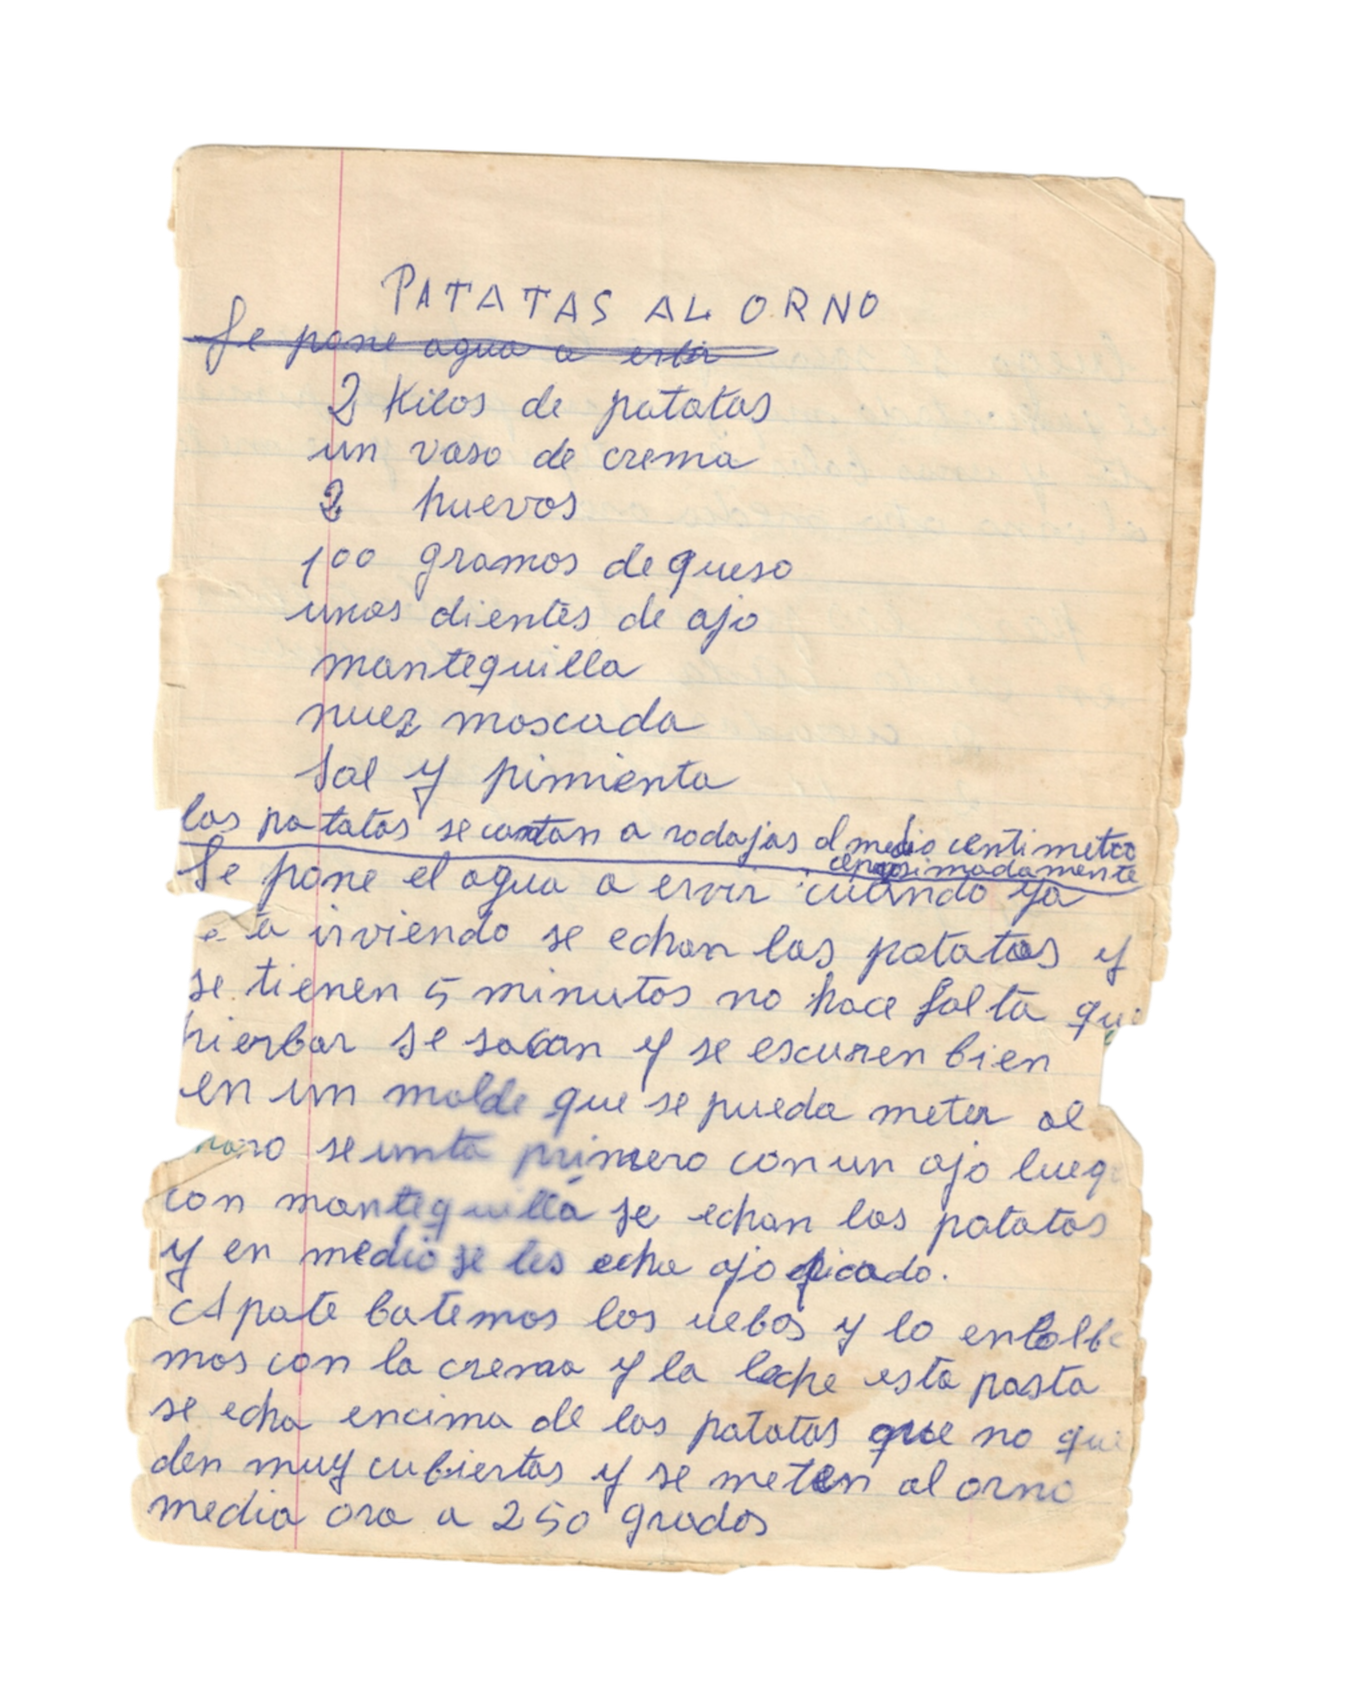 PATATAS AL ORNO
Se pone agua a
2 Kilos de patatas
un vaso de crema
2 huevos
100 gramos de queso
unos dientes de ajo
mantequilla
nuez moscada
Sal y pimienta
las patatas se cortan a rodajas d medio centimetro
Se pone el agua a ervir cuando ya
irviendo se echan las patatas y
se tienen 5 minutos no hace falta que
hierbar se sacan y se escuren bien
en un molde que se pueda meter al
se unta primero con un ajo luego
con mantequilla se echan las patatas
y en medio se les echa ajo picado.
Apate batemos los uebos y lo
mos con la crema y la leche esta pasta
se echa encima de las patatas que no que
den muy cubiertas y se meten al orno
media ora a 250 grados